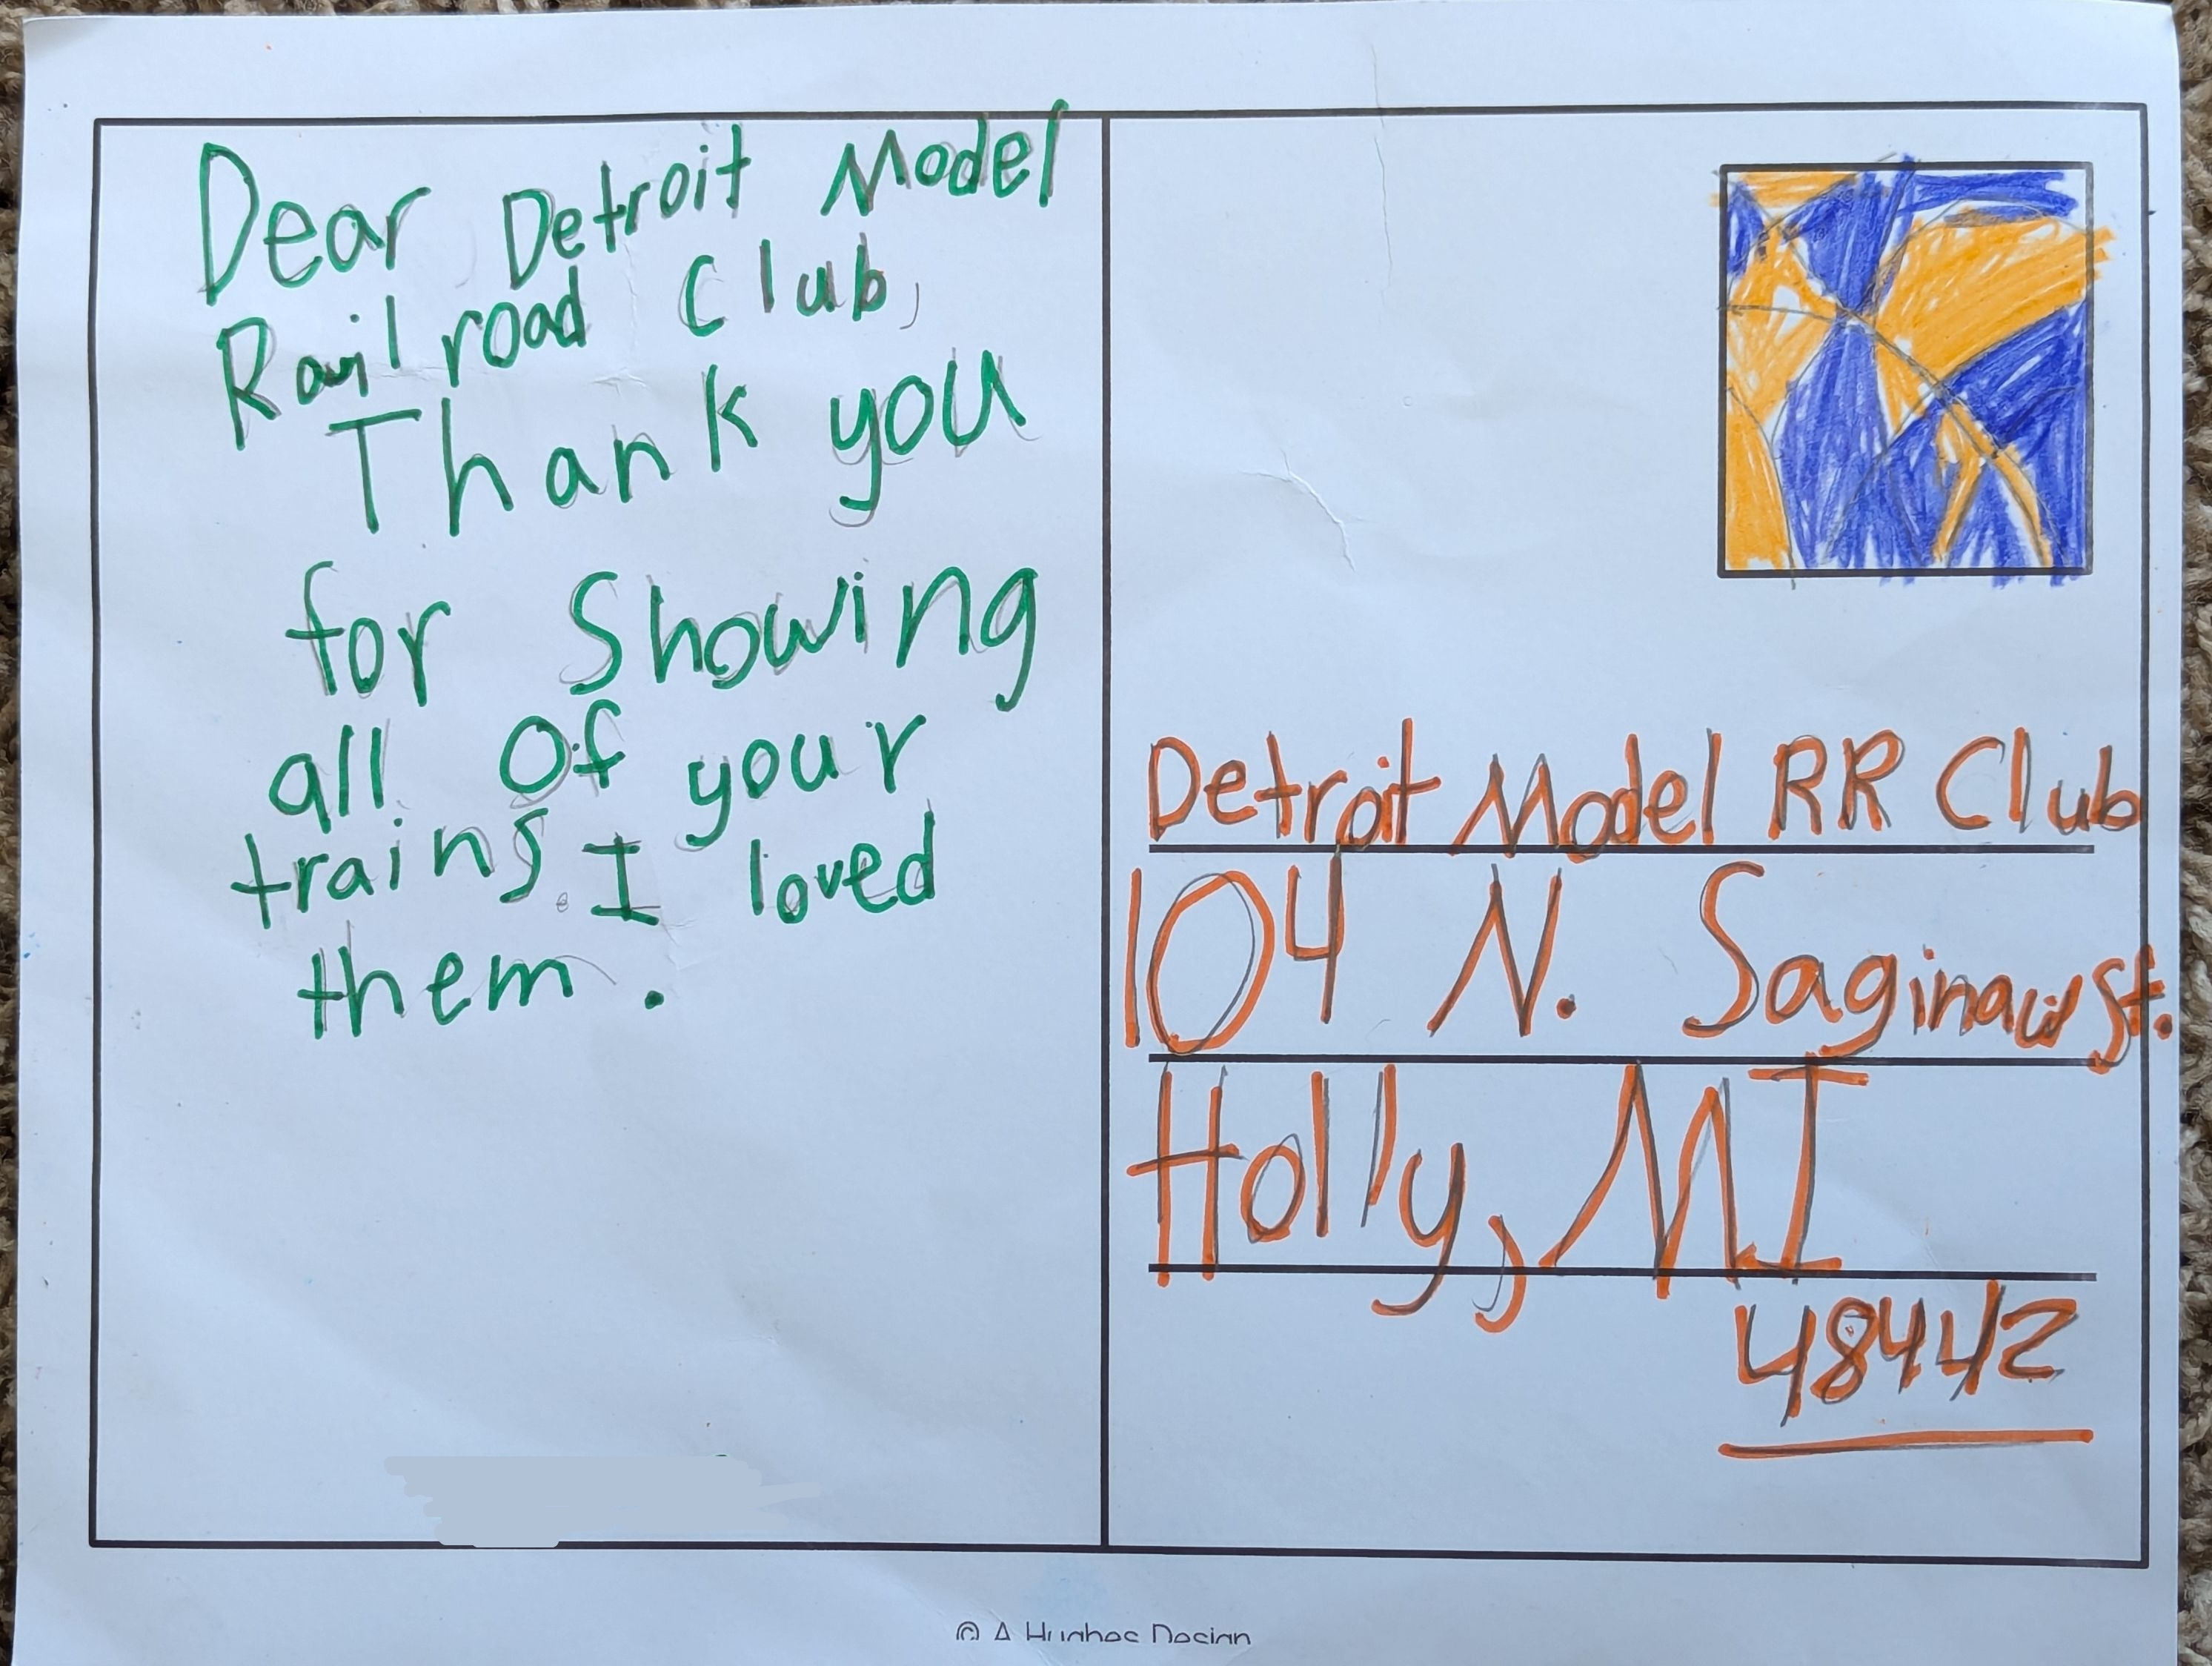 Dear Detroit Model
Railroad Club,
Thank you
for Showing
all Of your
trains. I loved
them.
Detroit Model RR Club
104 N. Saginaw St.
Holly, MI
48442
© A Hughes Design